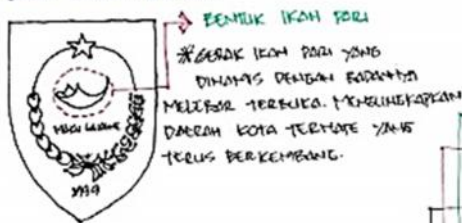 BENTUK IKAN PARI
*GERAK IKAN PARI YANG
DINAMIS DENGAN BADANNYA
MELEBAR TERBUKA. MENGUNGKAPKAN
DAERAH KOTA TERNATE YANG
TERUS BERKEMBANG.